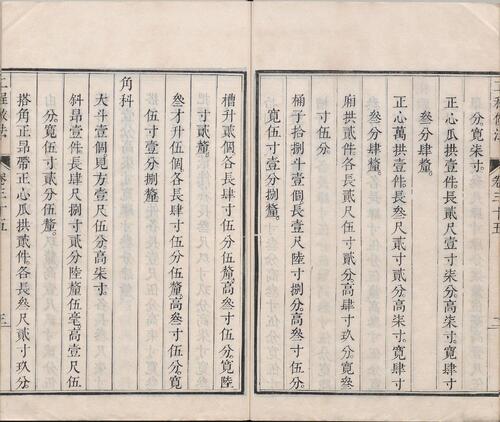 寬柒寸。
正心瓜拱壹件。長貳尺壹寸柒分。高柒寸。寬肆寸
叁分肆釐。
正心萬拱壹件。長叁尺貳寸貳分。高柒寸。寬肆寸
叁分肆釐。
廂拱貳件。各長貳尺伍寸貳分。高肆寸玖分。寬叁
寸伍分。
桶子拾捌斗壹個。長壹尺陸寸捌分。高叁寸伍分。
寬伍寸壹分捌釐。
三
槽升貳個。各長肆寸伍分伍釐。高叁寸伍分。寬陸
寸貳釐。
叁才升伍個。各長肆寸伍分伍釐。高叁寸伍分。寬
伍寸壹分捌釐。
角科
大斗壹個。見方壹尺伍分。高柒寸。
斜昂壹件。長肆尺捌寸貳分陸釐伍毫。高壹尺伍
寸貳分伍釐。
搭角正昂帶正心瓜拱貳件。各長叁尺貳寸玖分
工程做法
卷三十五
三